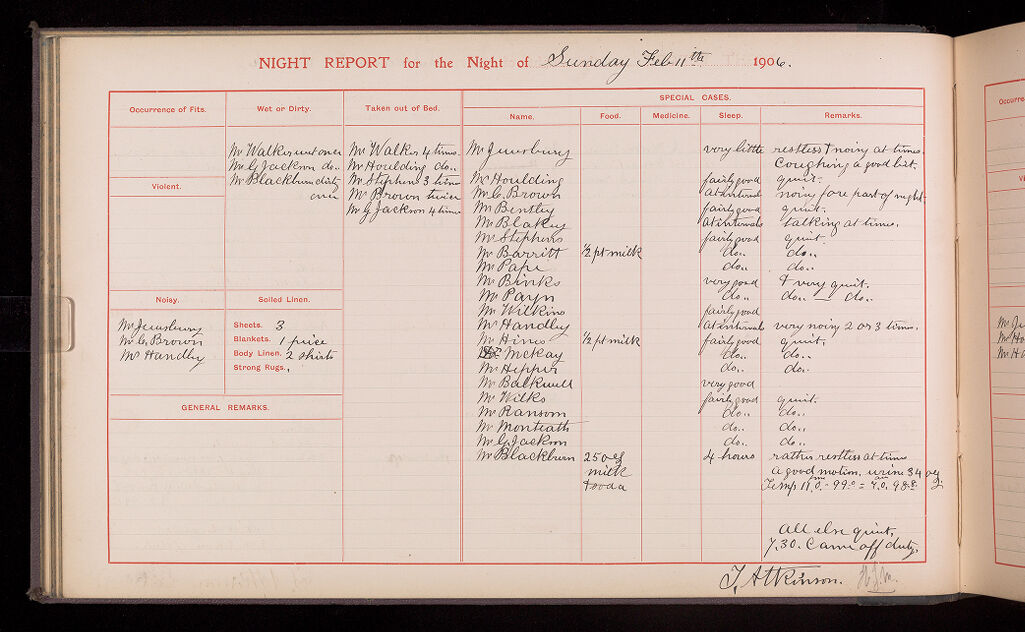 NIGHT REPORT for the Night of Sunday Feb 11th 1906.
Occurrence of Fits. Wet or Dirty. Taken out of Bed. SPECIAL CASES.
Name. Food. Medicine. Sleep. Remarks.
Mr Walker wet once
Mr G Jackson do..
Mr Blackburn dirty
once
Mr Walker 4 times.
Mr Houlding do..
Mr Stephens 3 times
Mr Brown twice
Mr G Jackson 4 times
Violent.
Noisy.
Mr Jewsbury
Mr C. Brown
Mr Handley
Soiled Linen.
Sheets. 3
Blankets. 1 piece
Body Linen. 2 shirts
Strong Rugs.
GENERAL REMARKS.
Mr Jewsbury very little restless & noisy at times.
Coughing a good bit.
Mr Houlding fairly good quiet.
Mr C. Brown at intervals noisy fore part of night.
Mr Bentley fairly good quiet.
Mr Blakey at intervals talking at times.
Mr Stephens fairly good quiet.
Mr Barritt ½ pt milk do.. do..
Mr Pape do.. do..
Mr Binks very good & very quiet.
Mr Payn do.. do.. — do..
Mr Wilkins fairly good
Mr Handley at intervals very noisy 2 or 3 times.
Mr Hines ½ pt milk fairly good quiet.
Mckay do.. do..
Mr Hepper do.. do..
Mr Balkwell very good
Mr Wilks fairly good quiet.
Mr Ransom do.. do..
Mr Monteath do.. do..
Mr G. Jackson do.. do..
Mr Blackburn 25 ozs 4 hours rather restless at times
milk a good motion. urine 34 ozs
& soda Temp 11.0. pm - 99.0 = 7.0. am 98.8.
All else quiet,
7.30. Came off duty.
T, Atkinson.